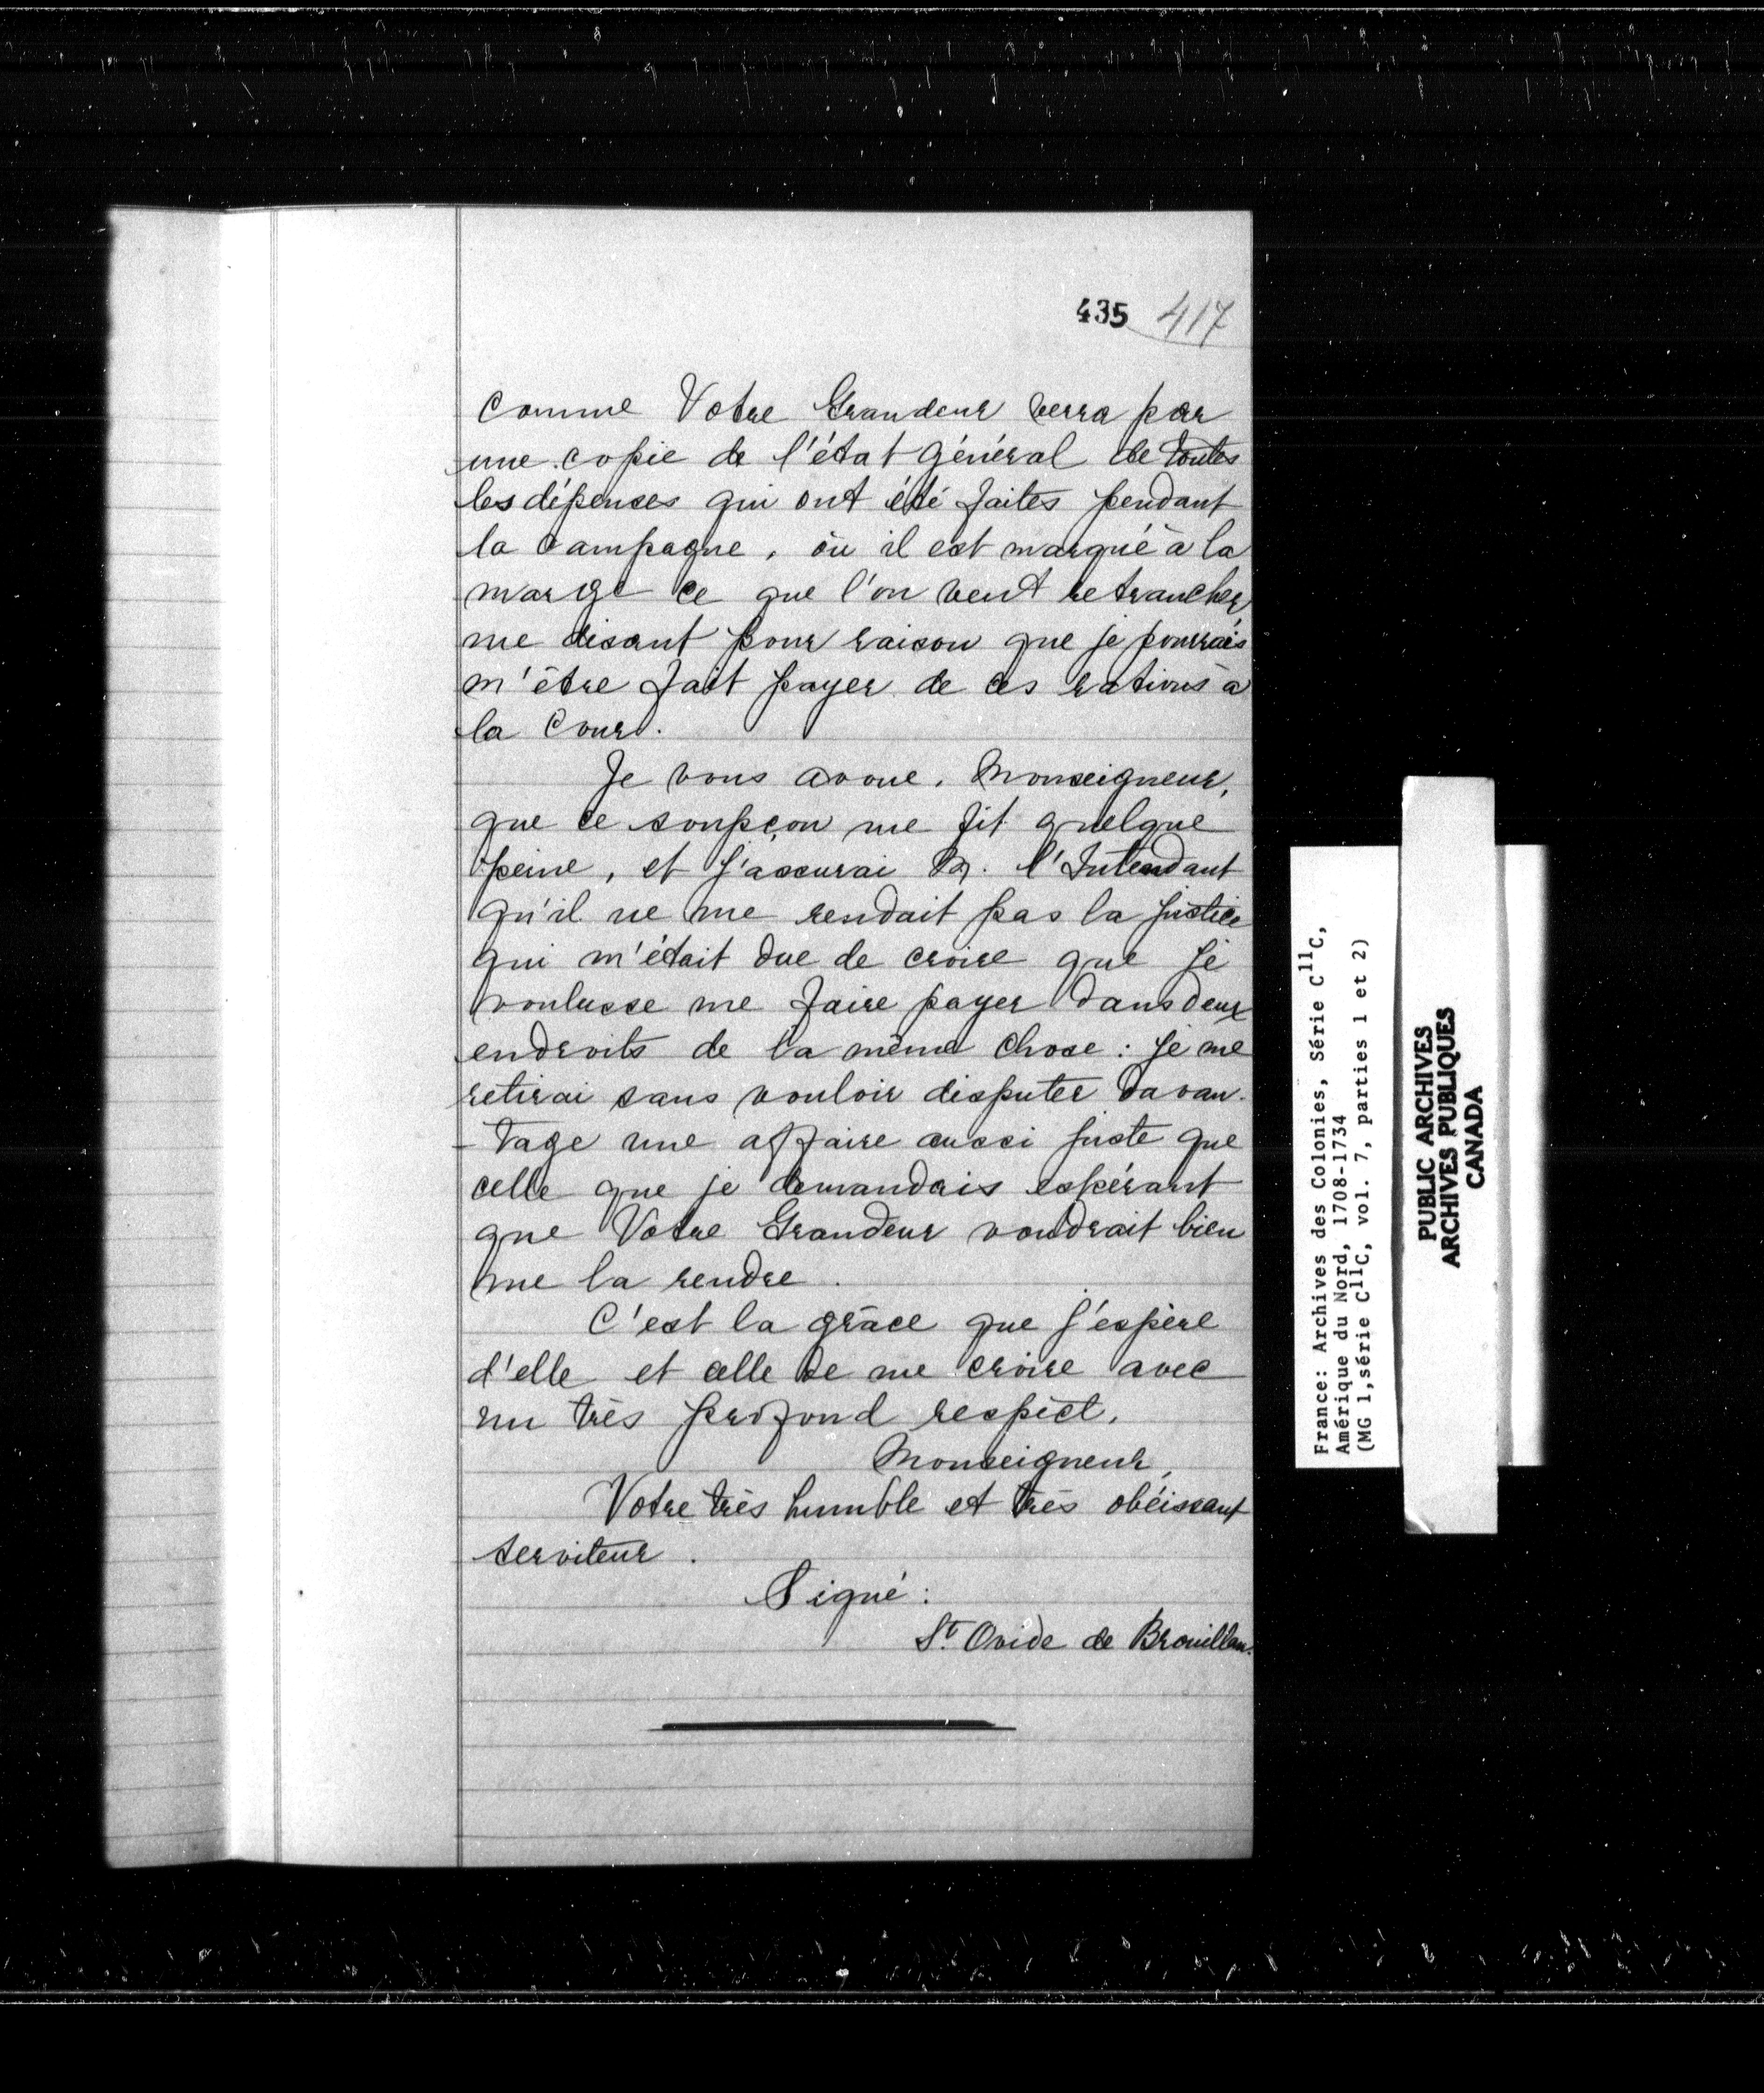 435 417
Comme Votre Grandeur verra par
une copie de l'état général de toutes
les dépenses qui ont été faites pendant
la Campagne, où il est marqué à la
marge ce que l'on veut retrancher,
me disant pour raison que je pourrais
m'être fait payer de ces rations à
la Cour.
Je vous avoue, Monseigneur,
que ce soupçon me fit quelque
peine, et j'assurai M. l'Intendant
qu'il ne me rendait pas la justice
qui m'était due de croire que je
voulusse me faire payer dans deux
endroits de la même chose : je me
retirai sans vouloir disputer davan-
-tage une affaire aussi juste que
celle que je demandais espérant
que Votre Grandeur voudrait bien
me la rendre.
C'est la grâce que j'espère
d'elle et celle de me croire avec
un très profond respect,
Monseigneur,
Votre très humble et très obéissant
serviteur.
Signé :
St. Ovide de Brouillan.
France: Archives des Colonies, Série C11C,
Amérique du Nord, 1708-1734
(MG 1,série C11C, vol. 7, parties 1 et 2)
PUBLIC ARCHIVES
ARCHIVES PUBLIQUES
CANADA